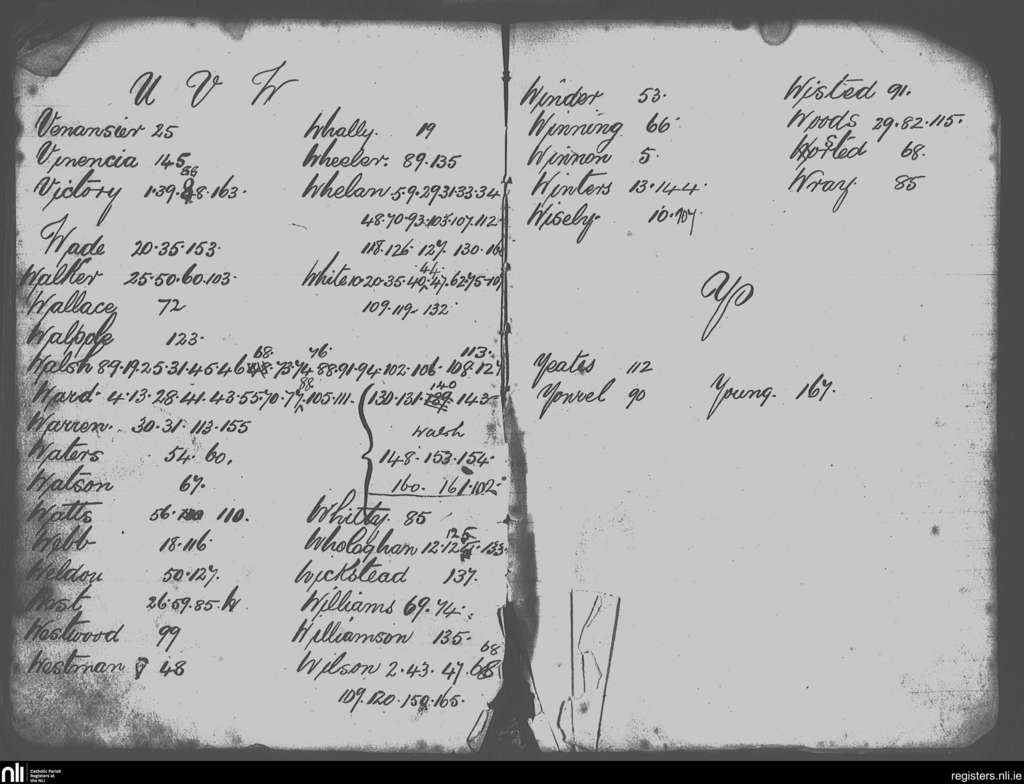 U V W
Venansier 25
Vinencia 145
56
Victory 1.39. 48.163.
Wade 20.35.153.
Walker 25.50.60.103.
Wallace 72
Walpole 123.
68. 76 113.
Walsh 8 9.19.25.31.45.46 48.73.74.88.91.94.102.106.108.127
88.
Ward 4.13.28.41.43.55.70.77.105.111.
Warren. 30.31.113.155
Waters 54.60.
Watson 67.
Watts 56. 110.
Webb 18.116
Weldon 50.127.
West 26.59.85.
Westwood 99
Westman 48
Whally. 19
Wheeler. 89.135
Whelan 5.9.29.31.33.34
48.70.93.103.107.112
118.126.127.130.16
44
White 10.20.35.40.47.62.75.10
109.119.132
140
130.131.139.143
Walsh
148.153.154.
160. 161.102.
Whitty. 85
125
Whologhan 12. 133.
Wickstead 137.
Williams 69.74.
Williamson 135.
68
Wilson 2.43.47.68
109.120.150.165.
Winder 53.
Winning 66
Winnon 5.
Winters 13.144.
Wiseby. 10.107
Wisted 91.
Woods 29.82.115.
Worsted 68.
Wray. 85
Y
Yeates 112
Yourel 90
Young. 167.
nli Catholic Parish Registers at the NLI
registers.nli.ie